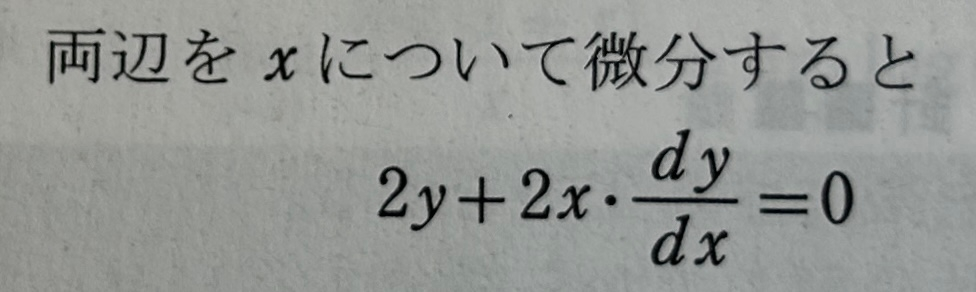 両辺を x について微分すると
2y+2x·dy/dx=0